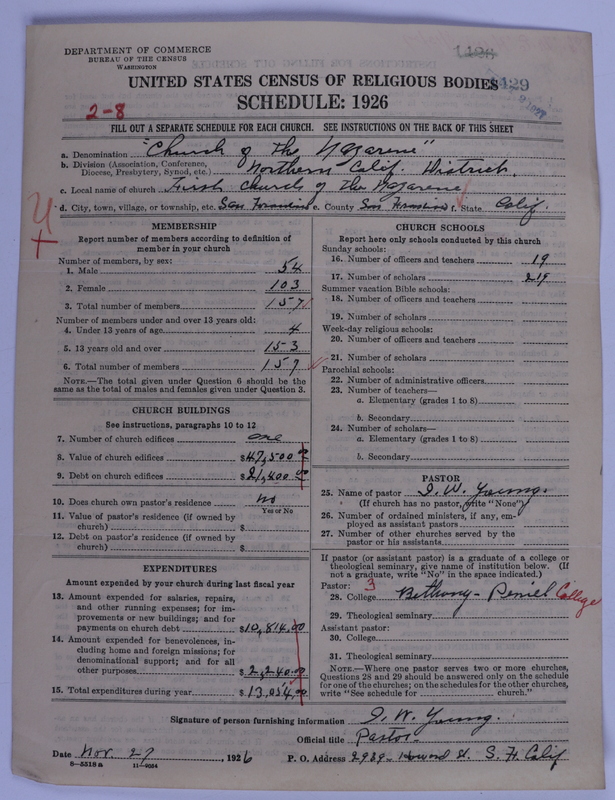 DEPARTMENT OF COMMERCE
BUREAU OF THE CENSUS
WASHINGTON
UNITED STATES CENSUS OF RELIGIOUS BODIES
SCHEDULE: 1926
2-8
FILL OUT A SEPARATE SCHEDULE FOR EACH CHURCH. SEE INSTRUCTIONS ON THE BACK OF THIS SHEET
a. Denomination "Church of the Nazarene"
b. Division (Association, Conference, Diocese, Presbytery, Synod, etc.) Northern Calif. District.
c. Local name of church First Church of the Nazarene
d. City, town, village, or township, etc. San Francisco e. County San Francisco f. State Calif.
MEMBERSHIP
Report number of members according to definition of
member in your church
Number of members, by sex:
1. Male 54
2. Female 103
3. Total number of members 157
Number of members under and over 13 years old:
4. Under 13 years of age 4
5. 13 years old and over 153
6. Total number of members 157
NOTE.—The total given under Question 6 should be
same as the total of males and females given under Question 3.
CHURCH BUILDINGS
See instructions, paragraphs 10 to 12
7. Number of church edifices one
8. Value of church edifices $47,500.00
9. Debt on church edifices $21,400.00
10. Does church own pastor's residence No
Yes or No
11. Value of pastor's residence (if owned by
church) $
12. Debt on pastor's residence (if owned by
church) $
EXPENDITURES
Amount expended by your church during last fiscal year
13. Amount expended for salaries, repairs,
and other running expenses; for im-
provements or new buildings; and for
payments on church debt $10,814.00
14. Amount expended for benevolences, in-
cluding home and foreign missions; for
denominational support; and for all
other purposes $2,240.00
15. Total expenditures during year $13,054.00
CHURCH SCHOOLS
Report here only schools conducted by this church
Sunday schools:
16. Number of officers and teachers 19
17. Number of scholars 219
Summer vacation Bible schools:
18. Number of officers and teachers
19. Number of scholars
Week-day religious schools:
20. Number of officers and teachers
21. Number of scholars
Parochial schools:
22. Number of administrative officers
23. Number of teachers—
a. Elementary (grades 1 to 8)
b. Secondary
24. Number of scholars—
a. Elementary (grades 1 to 8)
b. Secondary
PASTOR
25. Name of pastor I. W. Young.
(If church has no pastor, write "None")
26. Number of ordained ministers, if any, em-
ployed as assistant pastors
27. Number of other churches served by the
pastor or his assistants
If pastor (or assistant pastor) is a graduate of a college or
theological seminary, give name of institution below. (If
not a graduate, write "No" in the space indicated.)
Pastor: 3
28. College Bethany-Peniel College
29. Theological seminary
Assistant pastor:
30. College
31. Theological seminary
NOTE.—Where one pastor serves two or more churches,
Questions 28 and 29 should be answered only on the schedule
for one of the churches; on the schedules for the other churches,
write "See schedule for church."
Signature of person furnishing information I. W. Young.
Official title Pastor
Date Nov. 27, 1926 P. O. Address 2939 Howard St. S. F. Calif
8-5518 a 11-9654